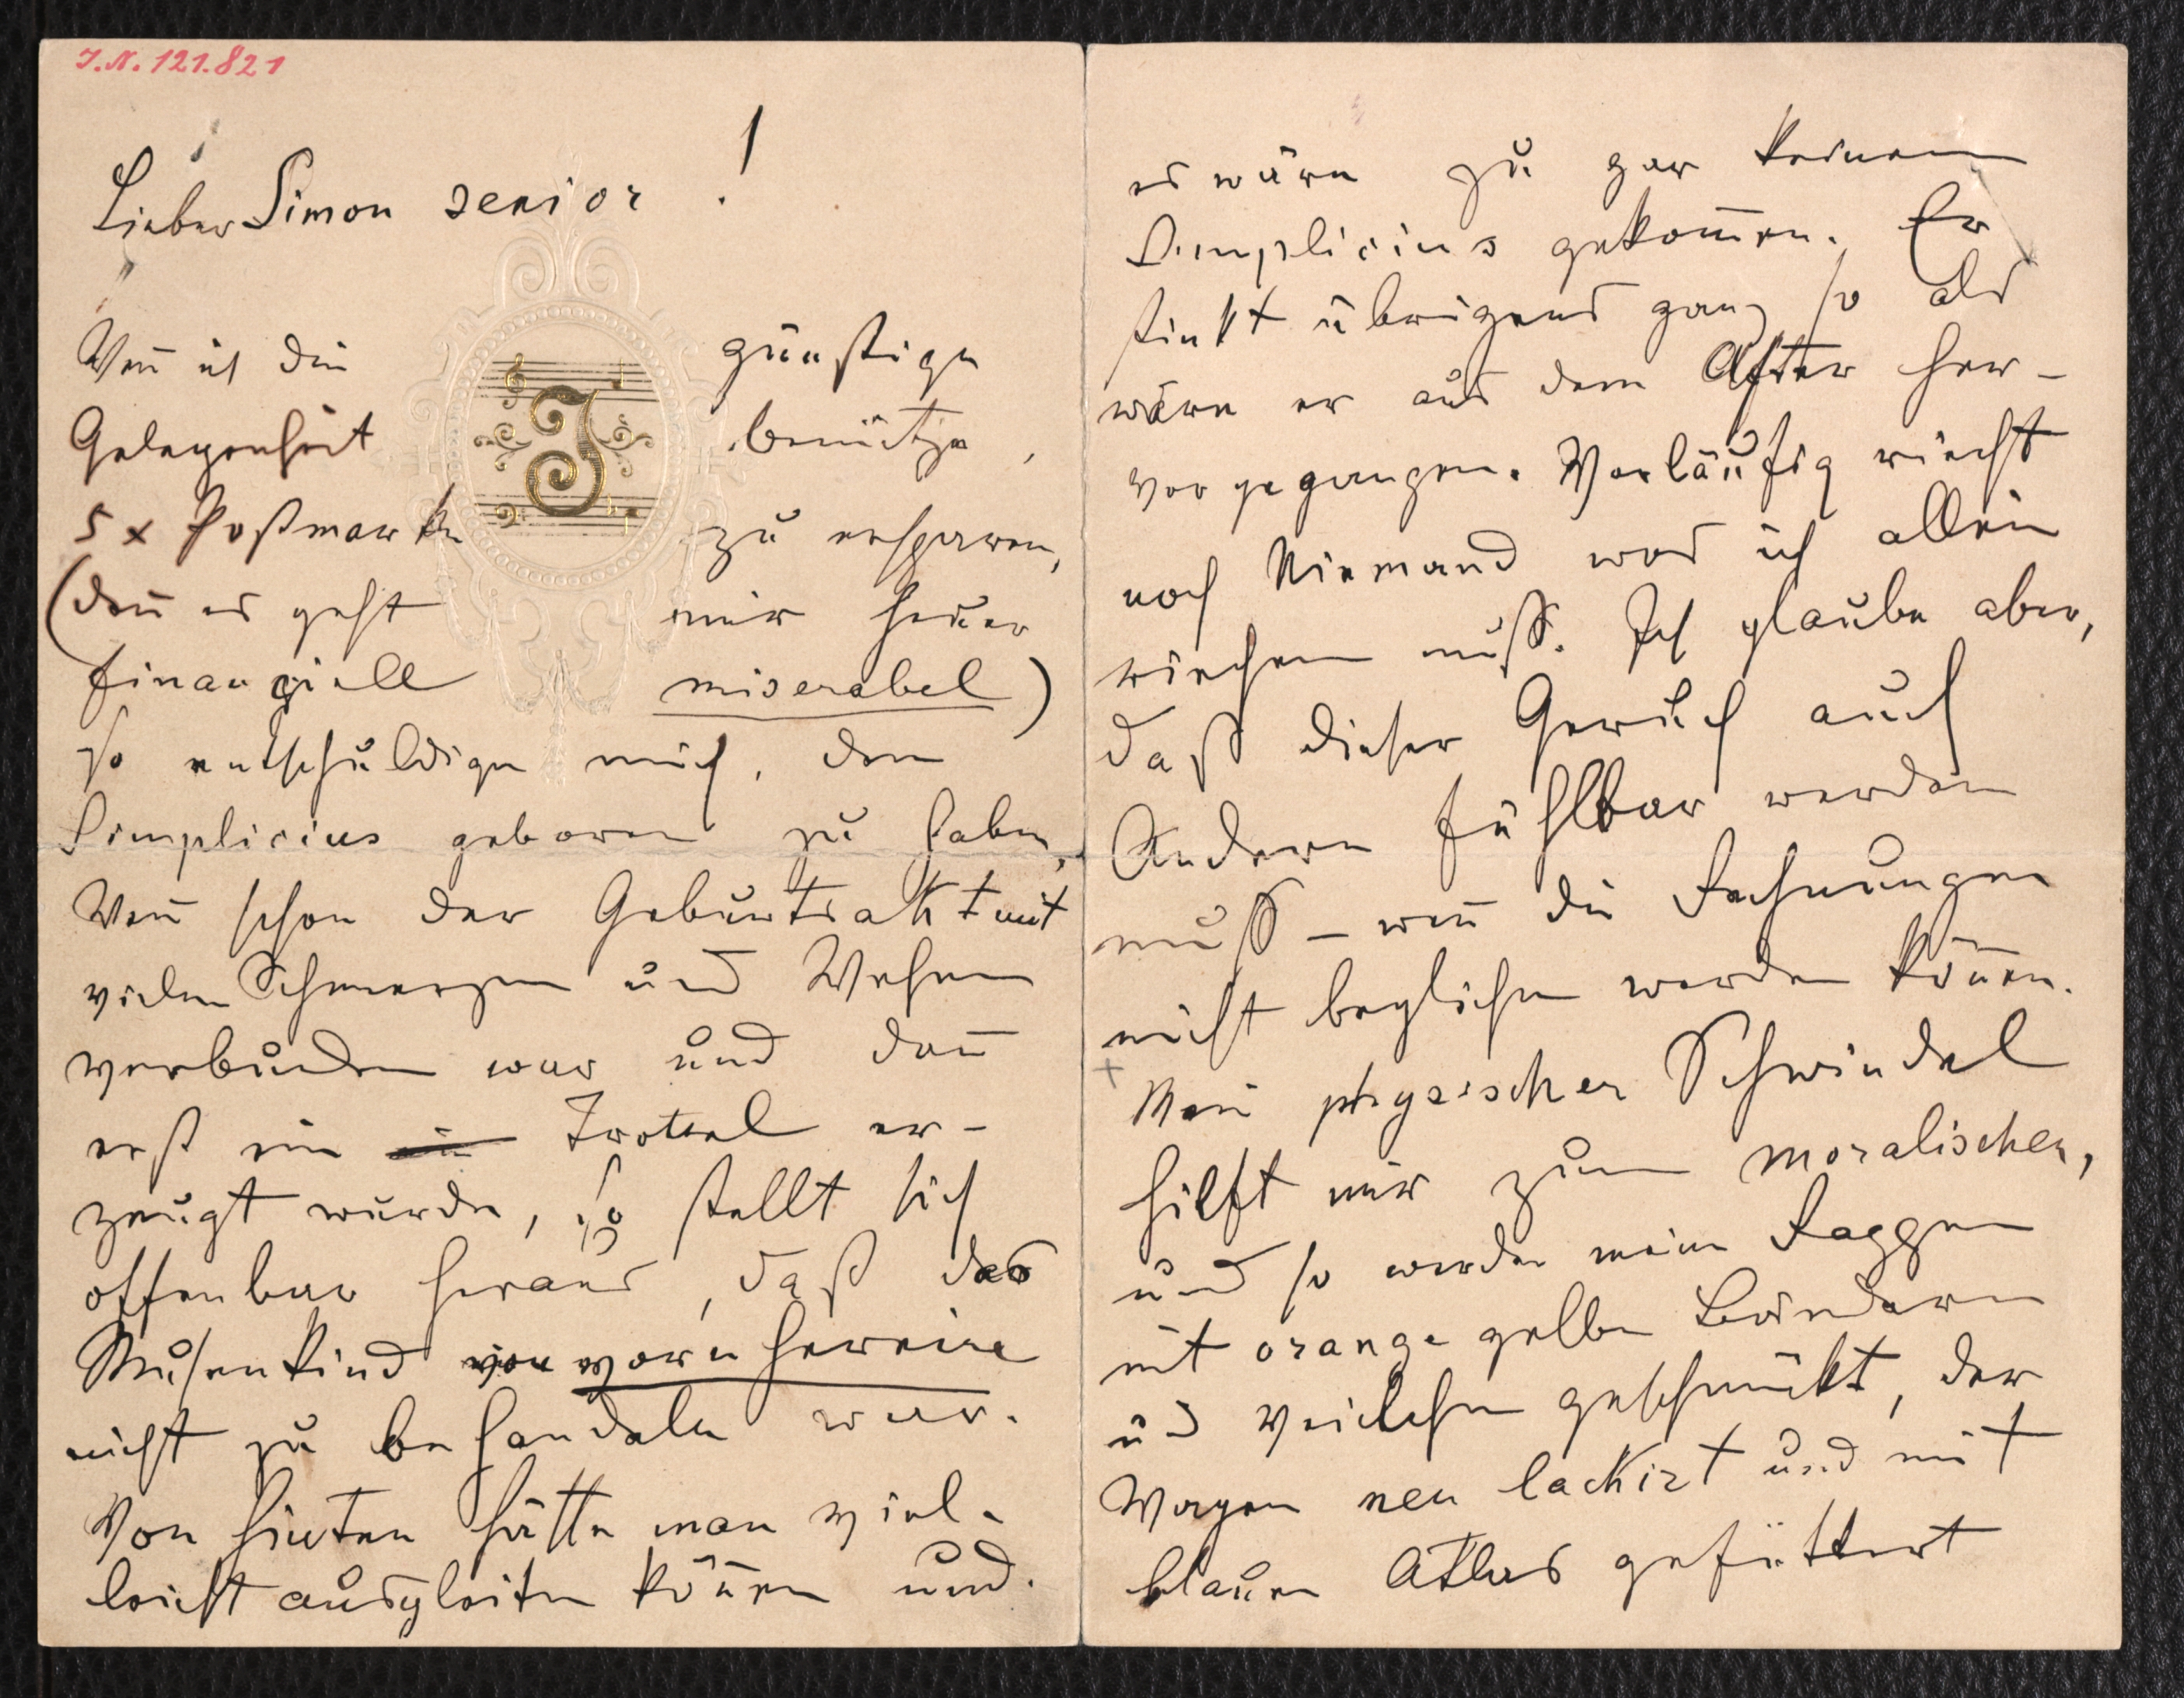 I.N. 121.821
Lieber Simon senior !
Wen̄ ich die günstige
Gelegenheit benütze,
5 x Postmarke zu ersparen,
(den̄ es geht mir heuer
finanziell miserabel)
so entschuldige mich, den
Simplicius geboren zu haben,
Wen̄ schon der Geburtsakt mit
vielen Schmerzen und Wehen
verbunden war und dan̄
erst ein Trottel er-
zeugt wurde, so stellt sich
offenbar heraus, daß das
Musenkind von vorn herein
nicht zu behandeln war.
Von hinten hätte man viel-
leicht ausgleiten kön̄en und.
es wäre zu gar keinem
Simplicius gekom̄en. Er
stinkt übrigens ganz so als
wäre er aus dem After her-
vorgegangen. Vorläufig riecht
noch Niemand was ich allein
riechen muß. Ich glaube aber,
daß dieser Geruch auch
Andern fühlbar werden
muß – wen̄ die Rechnungen
nicht beglichen werden kön̄en.
Mein physischer Schwindel
hilft mir zum moralischen,
und so werden meine Rappen
mit orange gelben Bändern
und Veilchen geschmückt, der
Wagen neu lackirt und mit
blauen Atlas gefüttert